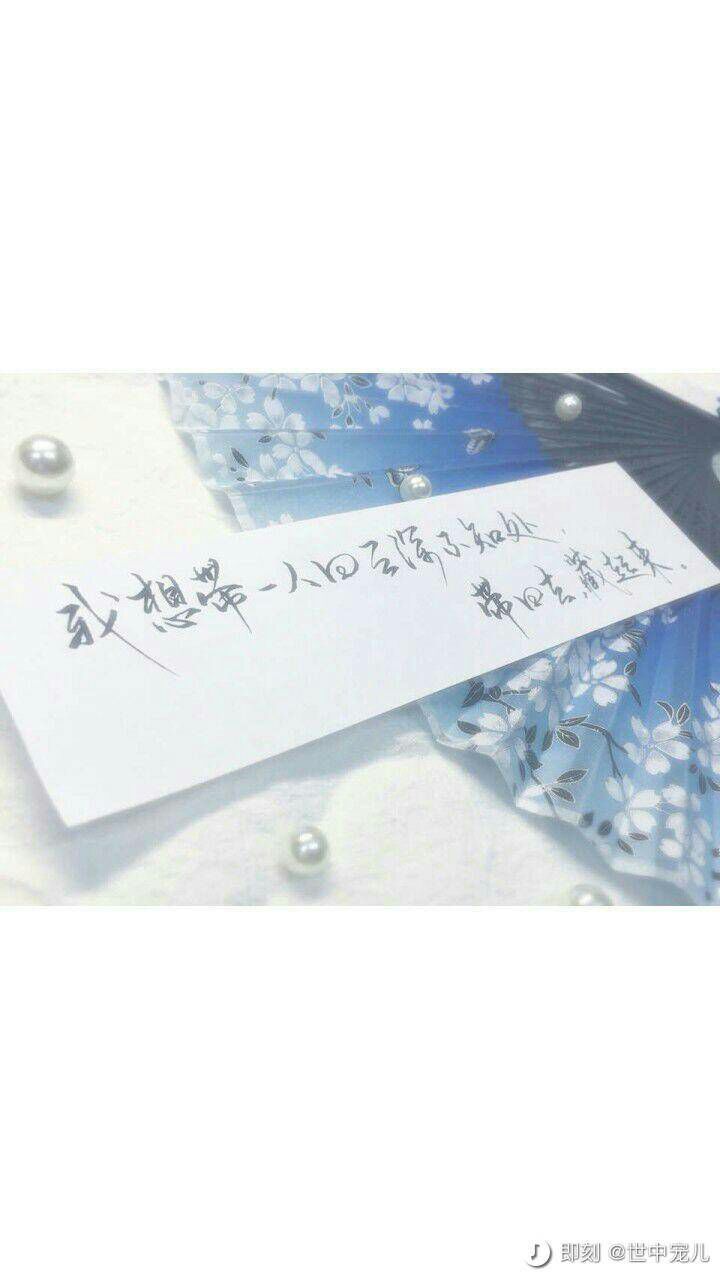 我想带一人回云深不知处.
带回去.藏起来.
即刻 @世中宠儿